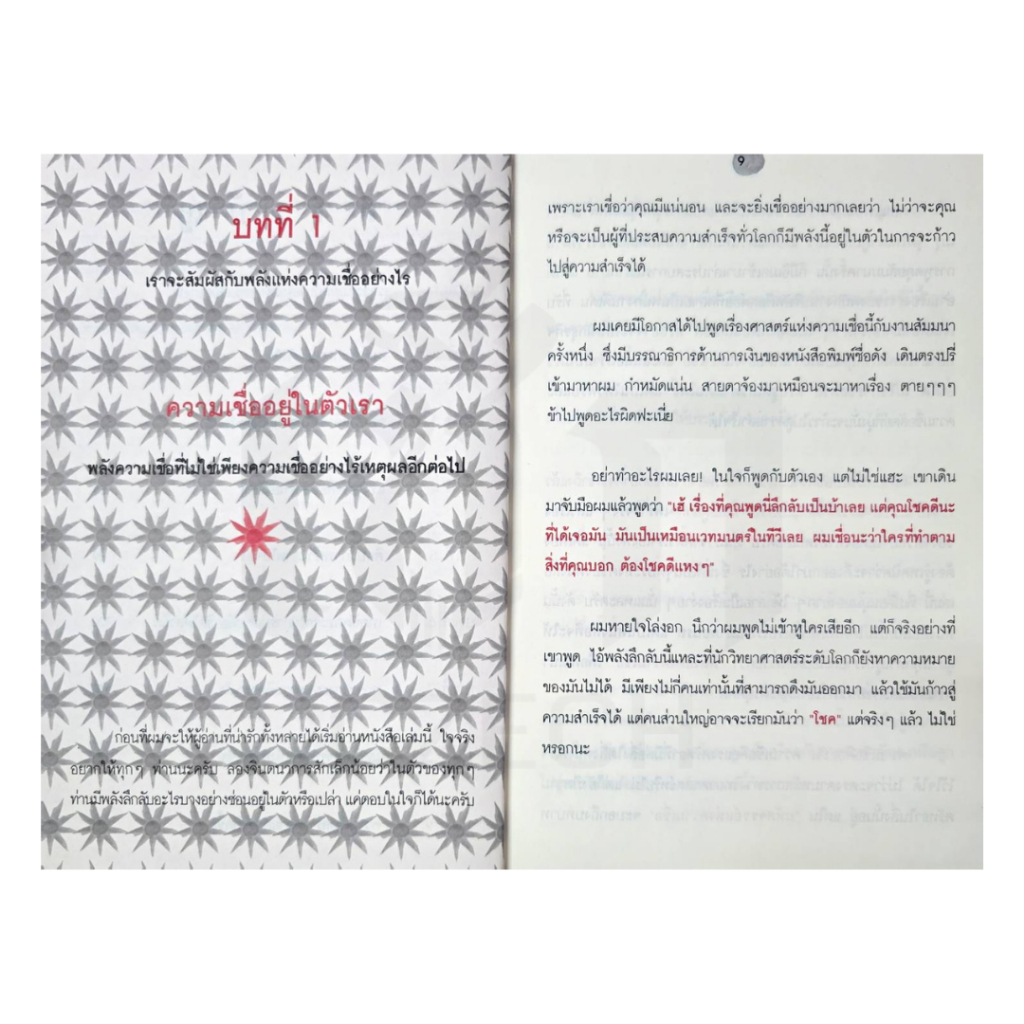 บทที่ 1
เราจะสัมผัสกับพลังแห่งความเชื่ออย่างไร
ความเชื่ออยู่ในตัวเรา
พลังความเชื่อที่ไม่ใช่เพียงความเชื่ออย่างไร้เหตุผลอีกต่อไป
ก่อนที่ผมจะให้ผู้อ่านที่น่ารักทั้งหลายได้เริ่มอ่านหนังสือเล่มนี้ ใจจริง
อยากให้ทุกๆ ท่านนะครับ ลองจินตนาการสักเล็กน้อยว่าในตัวของทุกๆ
ท่านมีพลังลึกลับอะไรบางอย่างซ่อนอยู่ในตัวหรือเปล่า แค่ตอบในใจก็ได้นะครับ
9
เพราะเราเชื่อว่าคุณมีแน่นอน และจะยิ่งเชื่ออย่างมากเลยว่า ไม่ว่าจะคุณ
หรือจะเป็นผู้ที่ประสบความสำเร็จทั่วโลกก็มีพลังนี้อยู่ในตัวในการจะก้าว
ไปสู่ความสำเร็จได้
ผมเคยมีโอกาสได้ไปพูดเรื่องศาสตร์แห่งความเชื่อนี้กับงานสัมมนา
ครั้งหนึ่ง ซึ่งมีบรรณาธิการด้านการเงินของหนังสือพิมพ์ชื่อดัง เดินตรงปรี่
เข้ามาหาผม กำหมัดแน่น สายตาจ้องมาเหมือนจะมาหาเรื่อง ตายๆๆๆ
ข้าไปพูดอะไรผิดฟะเนี่ย
อย่าทำอะไรผมเลย! ในใจก็พูดกับตัวเอง แต่ไม่ใช่แฮะ เขาเดิน
มาจับมือผมแล้วพูดว่า "เฮ้ เรื่องที่คุณพูดนี่ลึกลับเป็นบ้าเลย แต่คุณโชคดีนะ
ที่ได้เจอมัน มันเป็นเหมือนเวทมนตร์ในทีวีเลย ผมเชื่อนะว่าใครที่ทำตาม
สิ่งที่คุณบอก ต้องโชคดีแหงๆ"
ผมหายใจโล่งอก นึกว่าผมพูดไม่เข้าหูใครเสียอีก แต่ก็จริงอย่างที่
เขาพูด ไอ้พลังลึกลับนี้แหละที่นักวิทยาศาสตร์ระดับโลกก็ยังหาความหมาย
ของมันไม่ได้ มีเพียงไม่กี่คนเท่านั้นที่สามารถดึงมันออกมา แล้วใช้มันก้าวสู่
ความสำเร็จได้ แต่คนส่วนใหญ่อาจจะเรียกมันว่า "โชค" แต่จริงๆ แล้ว ไม่ใช่
หรอกนะ